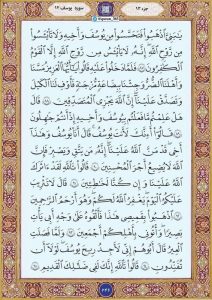 جزء ١٣
سورة يوسف ١٢
يَٰبَنِيَّ ٱذْهَبُوا۟ فَتَحَسَّسُوا۟ مِن يُوسُفَ وَأَخِيهِ وَلَا تَا۟يْـَٔسُوا۟
مِن رَّوْحِ ٱللَّهِ إِنَّهُۥ لَا يَا۟يْـَٔسُ مِن رَّوْحِ ٱللَّهِ إِلَّا ٱلْقَوْمُ
ٱلْكَٰفِرُونَ ٨٧ فَلَمَّا دَخَلُوا۟ عَلَيْهِ قَالُوا۟ يَٰٓأَيُّهَا ٱلْعَزِيزُ مَسَّنَا
وَأَهْلَنَا ٱلضُّرُّ وَجِئْنَا بِبِضَٰعَةٍ مُّزْجَىٰةٍ فَأَوْفِ لَنَا ٱلْكَيْلَ
وَتَصَدَّقْ عَلَيْنَآ إِنَّ ٱللَّهَ يَجْزِى ٱلْمُتَصَدِّقِينَ ٨٨ قَالَ
هَلْ عَلِمْتُم مَّا فَعَلْتُم بِيُوسُفَ وَأَخِيهِ إِذْ أَنتُمْ جَٰهِلُونَ ٨٩
قَالُوٓا۟ أَءِنَّكَ لَأَنتَ يُوسُفُ قَالَ أَنَا۠ يُوسُفُ وَهَٰذَآ
أَخِى قَدْ مَنَّ ٱللَّهُ عَلَيْنَآ إِنَّهُۥ مَن يَتَّقِ وَيَصْبِرْ فَإِنَّ
ٱللَّهَ لَا يُضِيعُ أَجْرَ ٱلْمُحْسِنِينَ ٩٠ قَالُوا۟ تَٱللَّهِ لَقَدْ ءَاثَرَكَ
ٱللَّهُ عَلَيْنَا وَإِن كُنَّا لَخَٰطِـِٔينَ ٩١ قَالَ لَا تَثْرِيبَ
عَلَيْكُمُ ٱلْيَوْمَ يَغْفِرُ ٱللَّهُ لَكُمْ وَهُوَ أَرْحَمُ ٱلرَّٰحِمِينَ
٩٢ ٱذْهَبُوا۟ بِقَمِيصِى هَٰذَا فَأَلْقُوهُ عَلَىٰ وَجْهِ أَبِى يَأْتِ
بَصِيرًا وَأْتُونِى بِأَهْلِكُمْ أَجْمَعِينَ ٩٣ وَلَمَّا فَصَلَتِ
ٱلْعِيرُ قَالَ أَبُوهُمْ إِنِّى لَأَجِدُ رِيحَ يُوسُفَ لَوْلَآ أَن
تُفَنِّدُونِ ٩٤ قَالُوا۟ تَٱللَّهِ إِنَّكَ لَفِى ضَلَٰلِكَ ٱلْقَدِيمِ ٩٥
٢٤٦